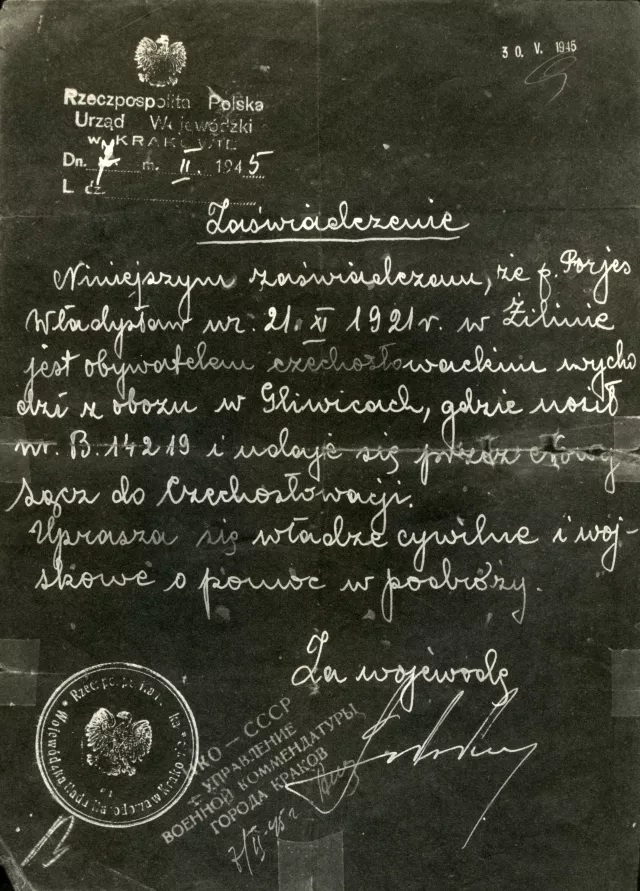 30. V. 1945
Rzeczpospolita Polska
Urząd Wojewódzki
w KRAKOWIE
Dn. m. II. 1945
L. dz.
Zaświadczenie
Niniejszym zaświadczam, że p. Porjes
Władysław ur. 21. XI 1921 r. w Żilinie
jest obywatelem czechosłowackim wycho
dzi z obozu w Gliwicach, gdzie nosił
nr. B. 14219 i udaje się przez Nowy
Sącz do Czechosłowacji.
Uprasza się władze cywilne i woj-
skowe o pomoc w podróży.
Za wojewodę
Wojewódzka Rada Narodowa w Krakowie
НКО — СССР
УПРАВЛЕНИЕ
ВОЕННОЙ КОММЕНДАТУРЫ
ГОРОДА КРАКОВ
7/II 45 г